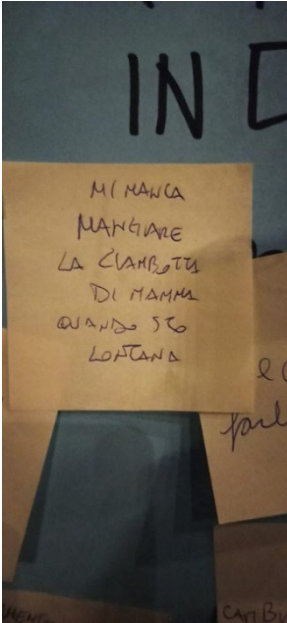 IN
MI MANCA
MANGIARE
LA CIAMBOTTA
DI MAMMA
QUANDO STO
LONTANA